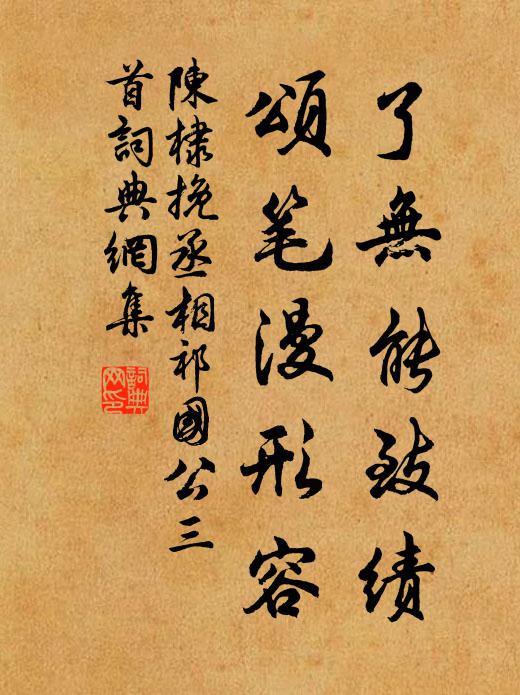 了無能致績
頌笔漫形容
陳棣挽丞相祁國公三
首詞典網集
詞典
网印